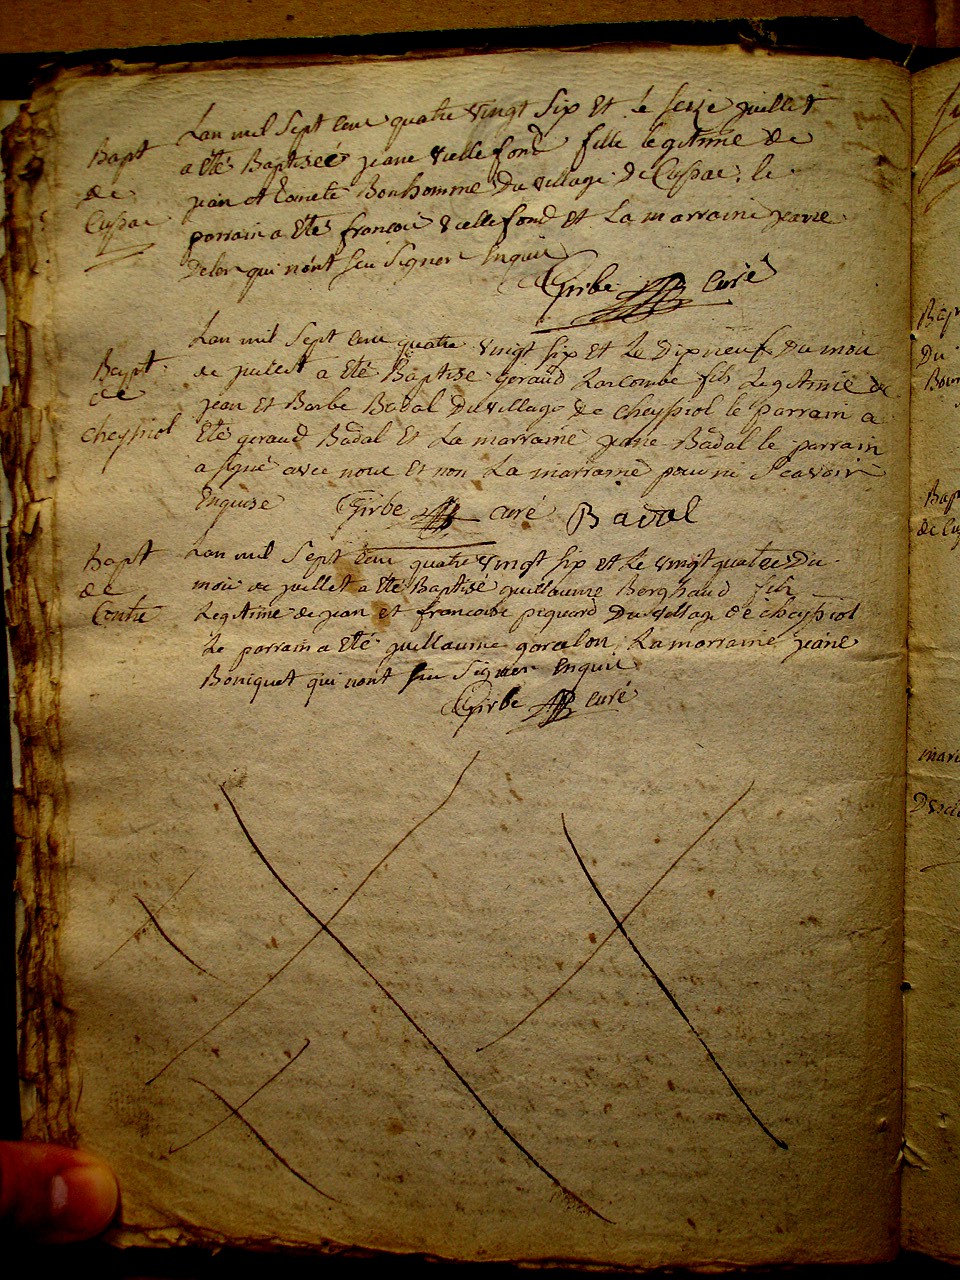 Bapt
de
Cussac
Lan mil Sept Cent quatre vingt Six Et le seize juillet
a Eté Baptiseé jeane vielle fond fille legitime de
jean et Bonhomme Du village de Cussac. le
parrain a Eté francois vielle fond et La marraine jeane
Delor qui n'ont sçu Signer Enquis
Girbe curé
Bapt
de
cheyssiol
Lan mil Sept Cent quatre vingt six et Le Dixneuf Du mois
de juillet a Eté Baptise geraud Larcombe fils Legitime de
jean Et Barbe Badal Du village de cheyssiol le parrain a
Eté geraud Badal Et La marraine jeane Badal le parrain
a signé avec nous Et non La marraine pour ni Scavoir
Enquise Girbe curé Badal
Bapt
de
Lan mil Sept Cent quatre vingt six et Le vingt quatre Du
mois de juillet a Eté Baptisé guillaume Berghaud fils
Legitime de jean et francoise piquard Du village de cheyssiol
Le parrain a Eté guillaume La marraine jeane
Boniquet qui nont sçu Signer Enquis
Girbe curé
Bapt
Du
Bapt
de